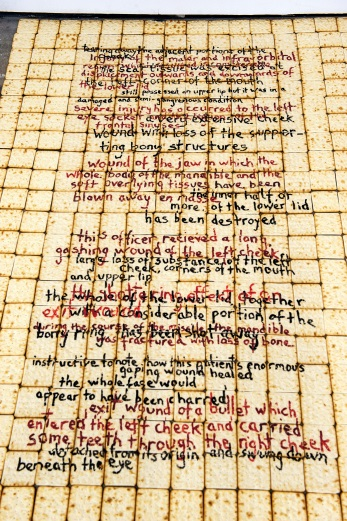 tearing away the adjacent portions of the
of the malar and infra-orbital
displacement outwards and downwards of
the left corner of the mouth
the lower lid
still possessed an upper lip but it was in a
damaged and semi-gangrenous condition
severe injury has occurred to the left
eye socket a very extensive cheek
frontal sinuses
wound with loss of the suppor-
ting bony structures
wound of the jaw in which the
whole body of the mandible and the
soft overlying tissues have been
blown away en
the inner half or
more, of the lower lid
has been destroyed
this officer recieved a long
gashing wound of the left cheek,
large loss of substance of the left
cheek, corners of the mouth
and upper lip
the whole of the lower lid together
with a considerable portion of the
bony ring, has been shot away
fractured with loss of bone
instructive to note how this patient's enormous
gaping wound healed
the whole face would
appear to have been charred
exit wound of a bullet which
entered the left cheek and carried
some teeth through the right cheek
from its origin and swung down
beneath the eye